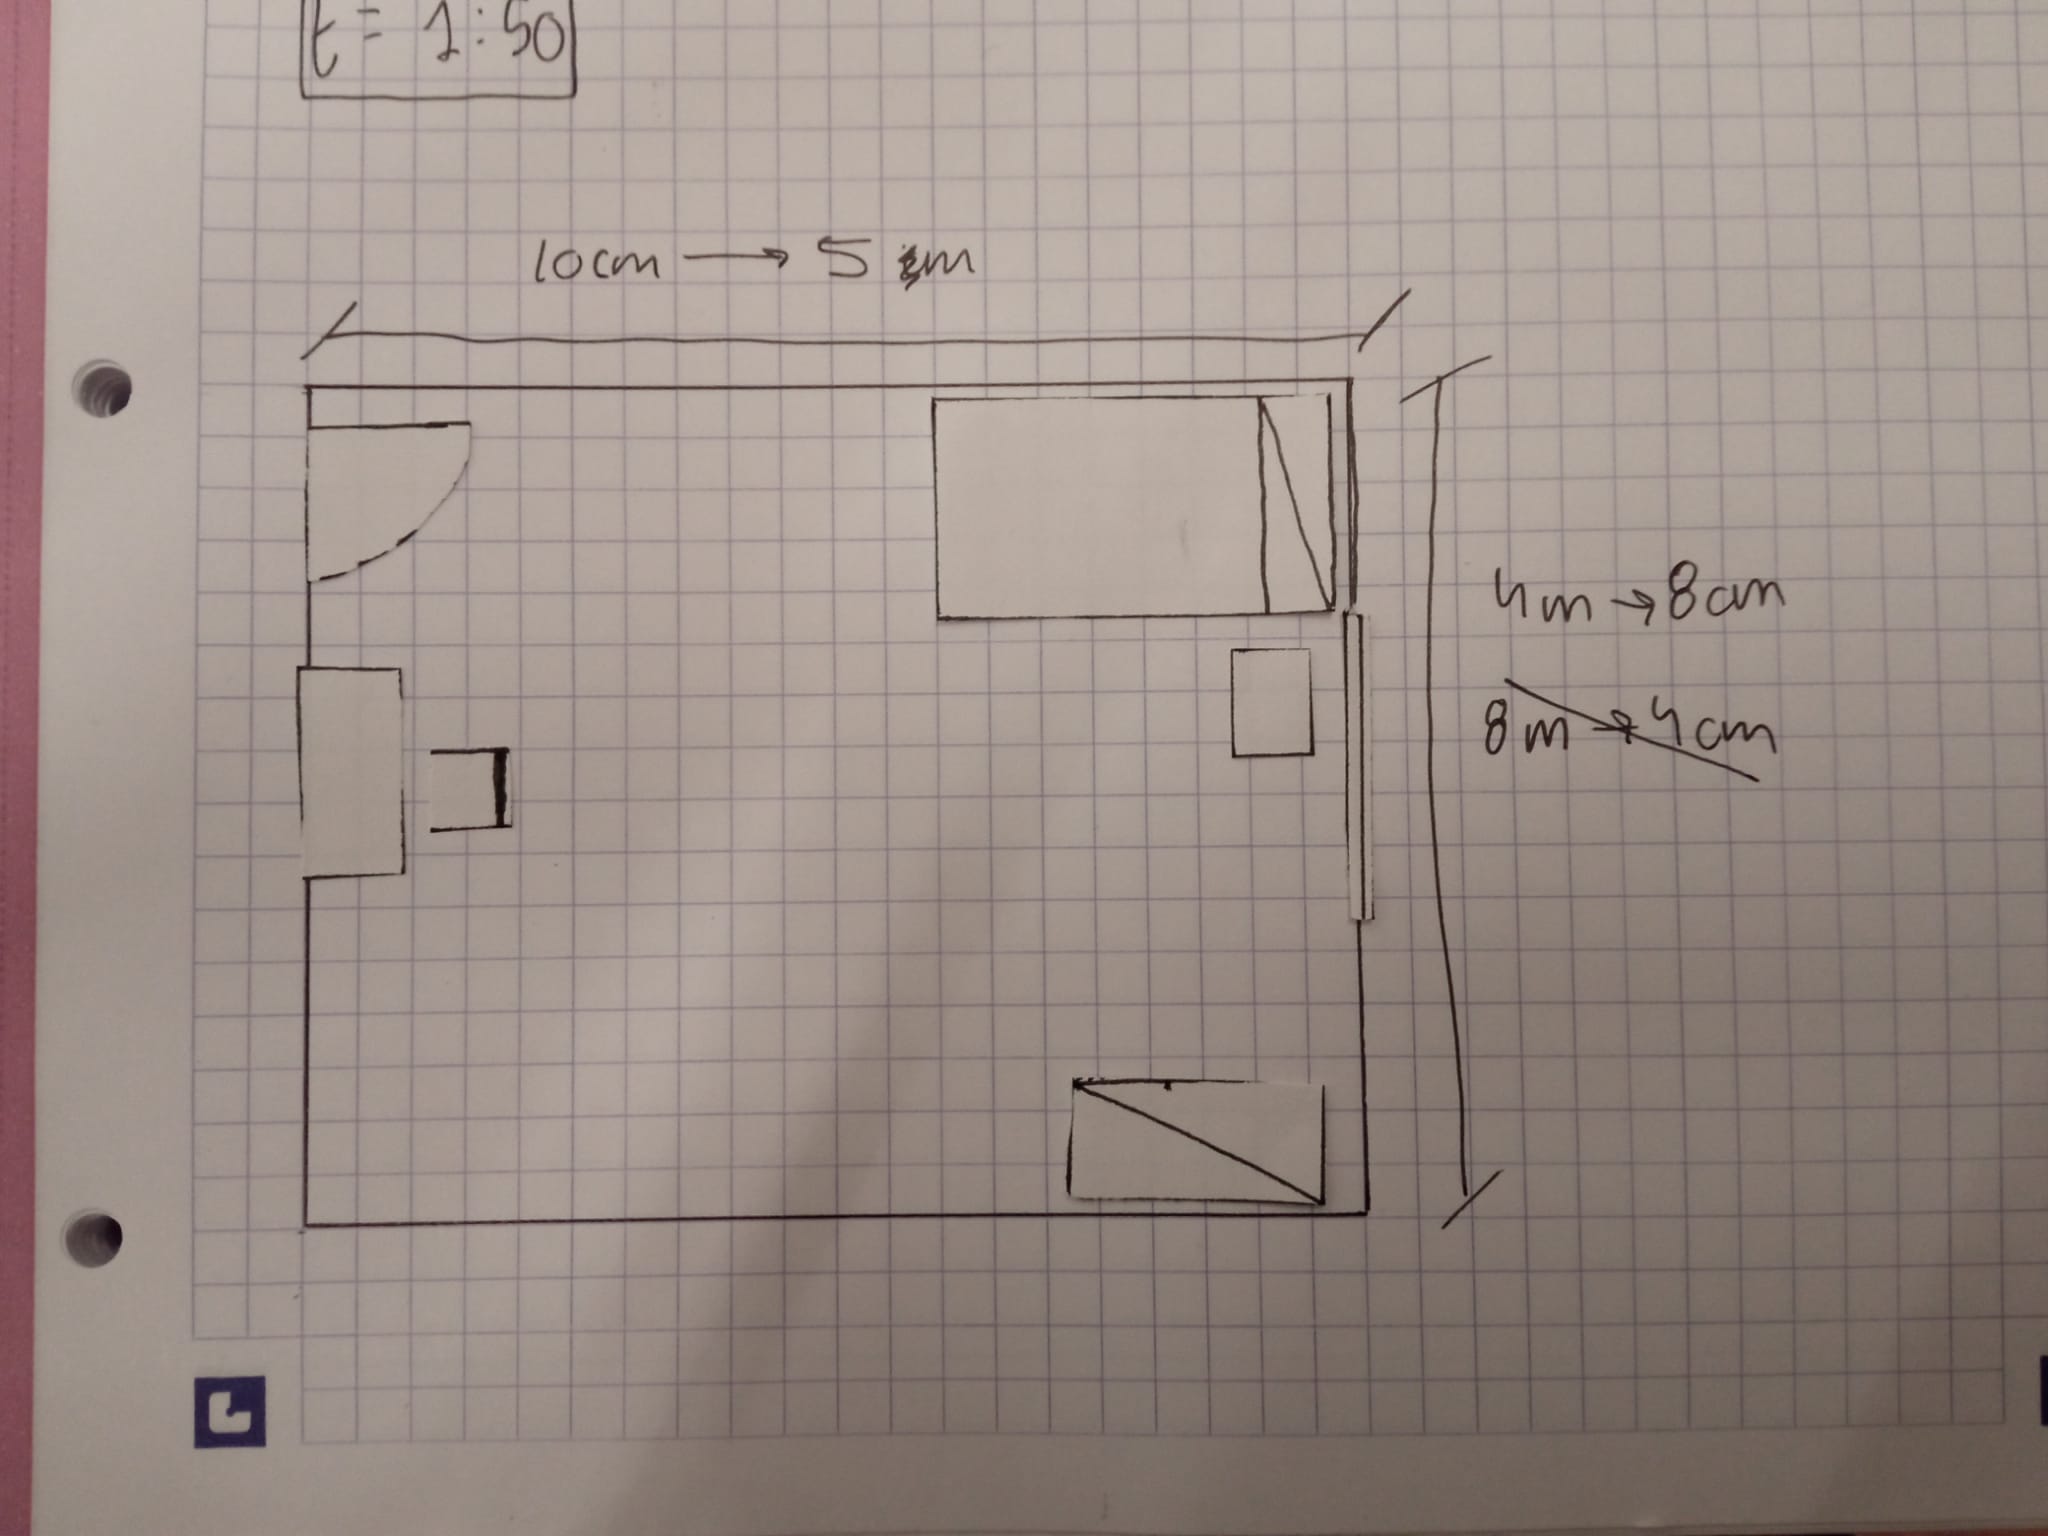 E = 1:50
10cm → 5 m
4m → 8cm
8m → 4cm